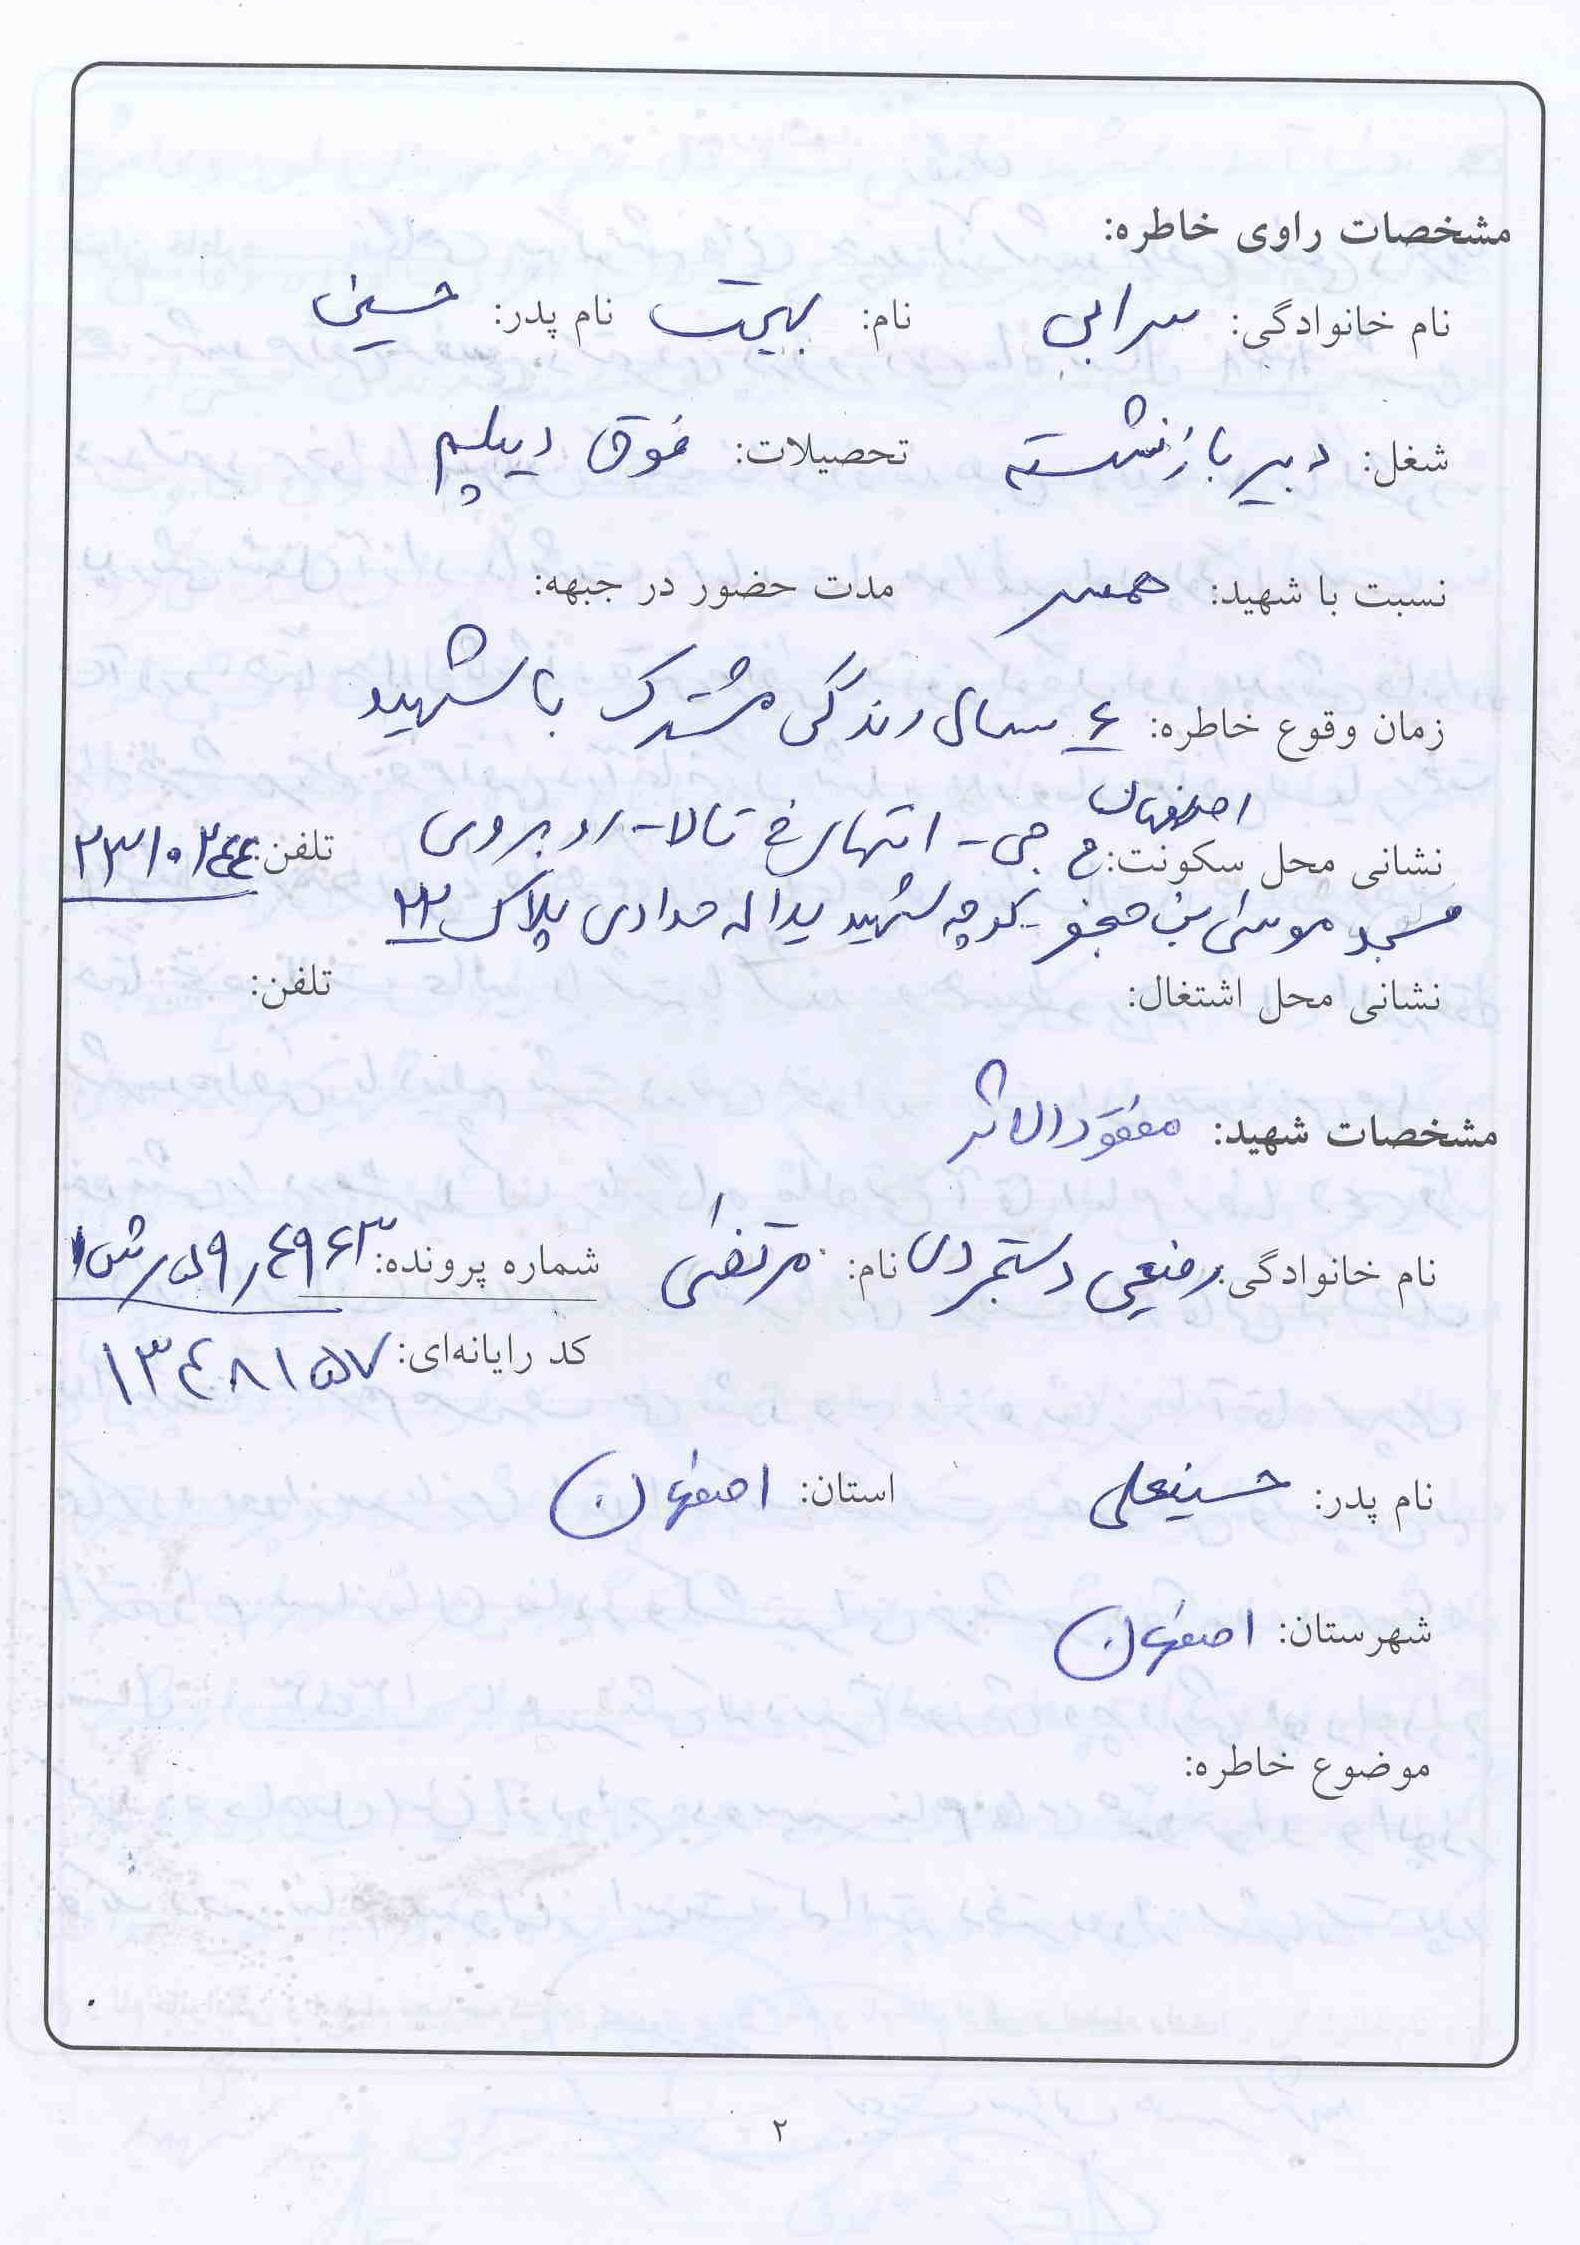 مشخصات راوی خاطره:
نام خانوادگی: سرابی نام: بهجت نام پدر: حسین
شغل: دبیر بازنشسته تحصیلات: فوق دیپلم
نسبت با شهید: همسر مدت حضور در جبهه:
زمان وقوع خاطره: ۶ سال زندگی مشترک با شهید
اصفهان
نشانی محل سکونت: خ جی - انتهای خ تالار - روبروی تلفن: ۲۳۱۰۲۴۴
مسجد موسی بن جعفر - کوچه شهید یداله حدادی پلاک ۲۳
نشانی محل اشتغال: تلفن:
مشخصات شهید: مفقودالاثر
نام خانوادگی: رفیعی دستجردی نام: مرتضی شماره پرونده: ۵۹٫۴۹۶۳
کد رایانه‌ای: ۱۳۴۸۱۵۷
نام پدر: حسینعلی استان: اصفهان
شهرستان: اصفهان
موضوع خاطره:
۲